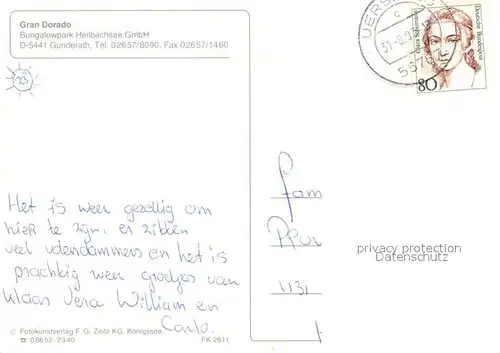 Gran Dorado
Bungalowpark Heilbachsee GmbH
D-5441 Gunderath, Tel. 02657/8090. Fax 02657/1460
23
UERS
5576
31-8.9
Deutsche Bundespost
Clara Schumann
80
Het is weer gezellig om
hier te zijn. er zitten
veel volendammers en het is
prachtig weer groetjes van
klaas Vera William en
Carlo.
Fam
1131
privacy protection
Datenschutz
© Fotokunstverlag F. G. Zeitz KG, Königssee
☎ 08652-2340
FK 2611